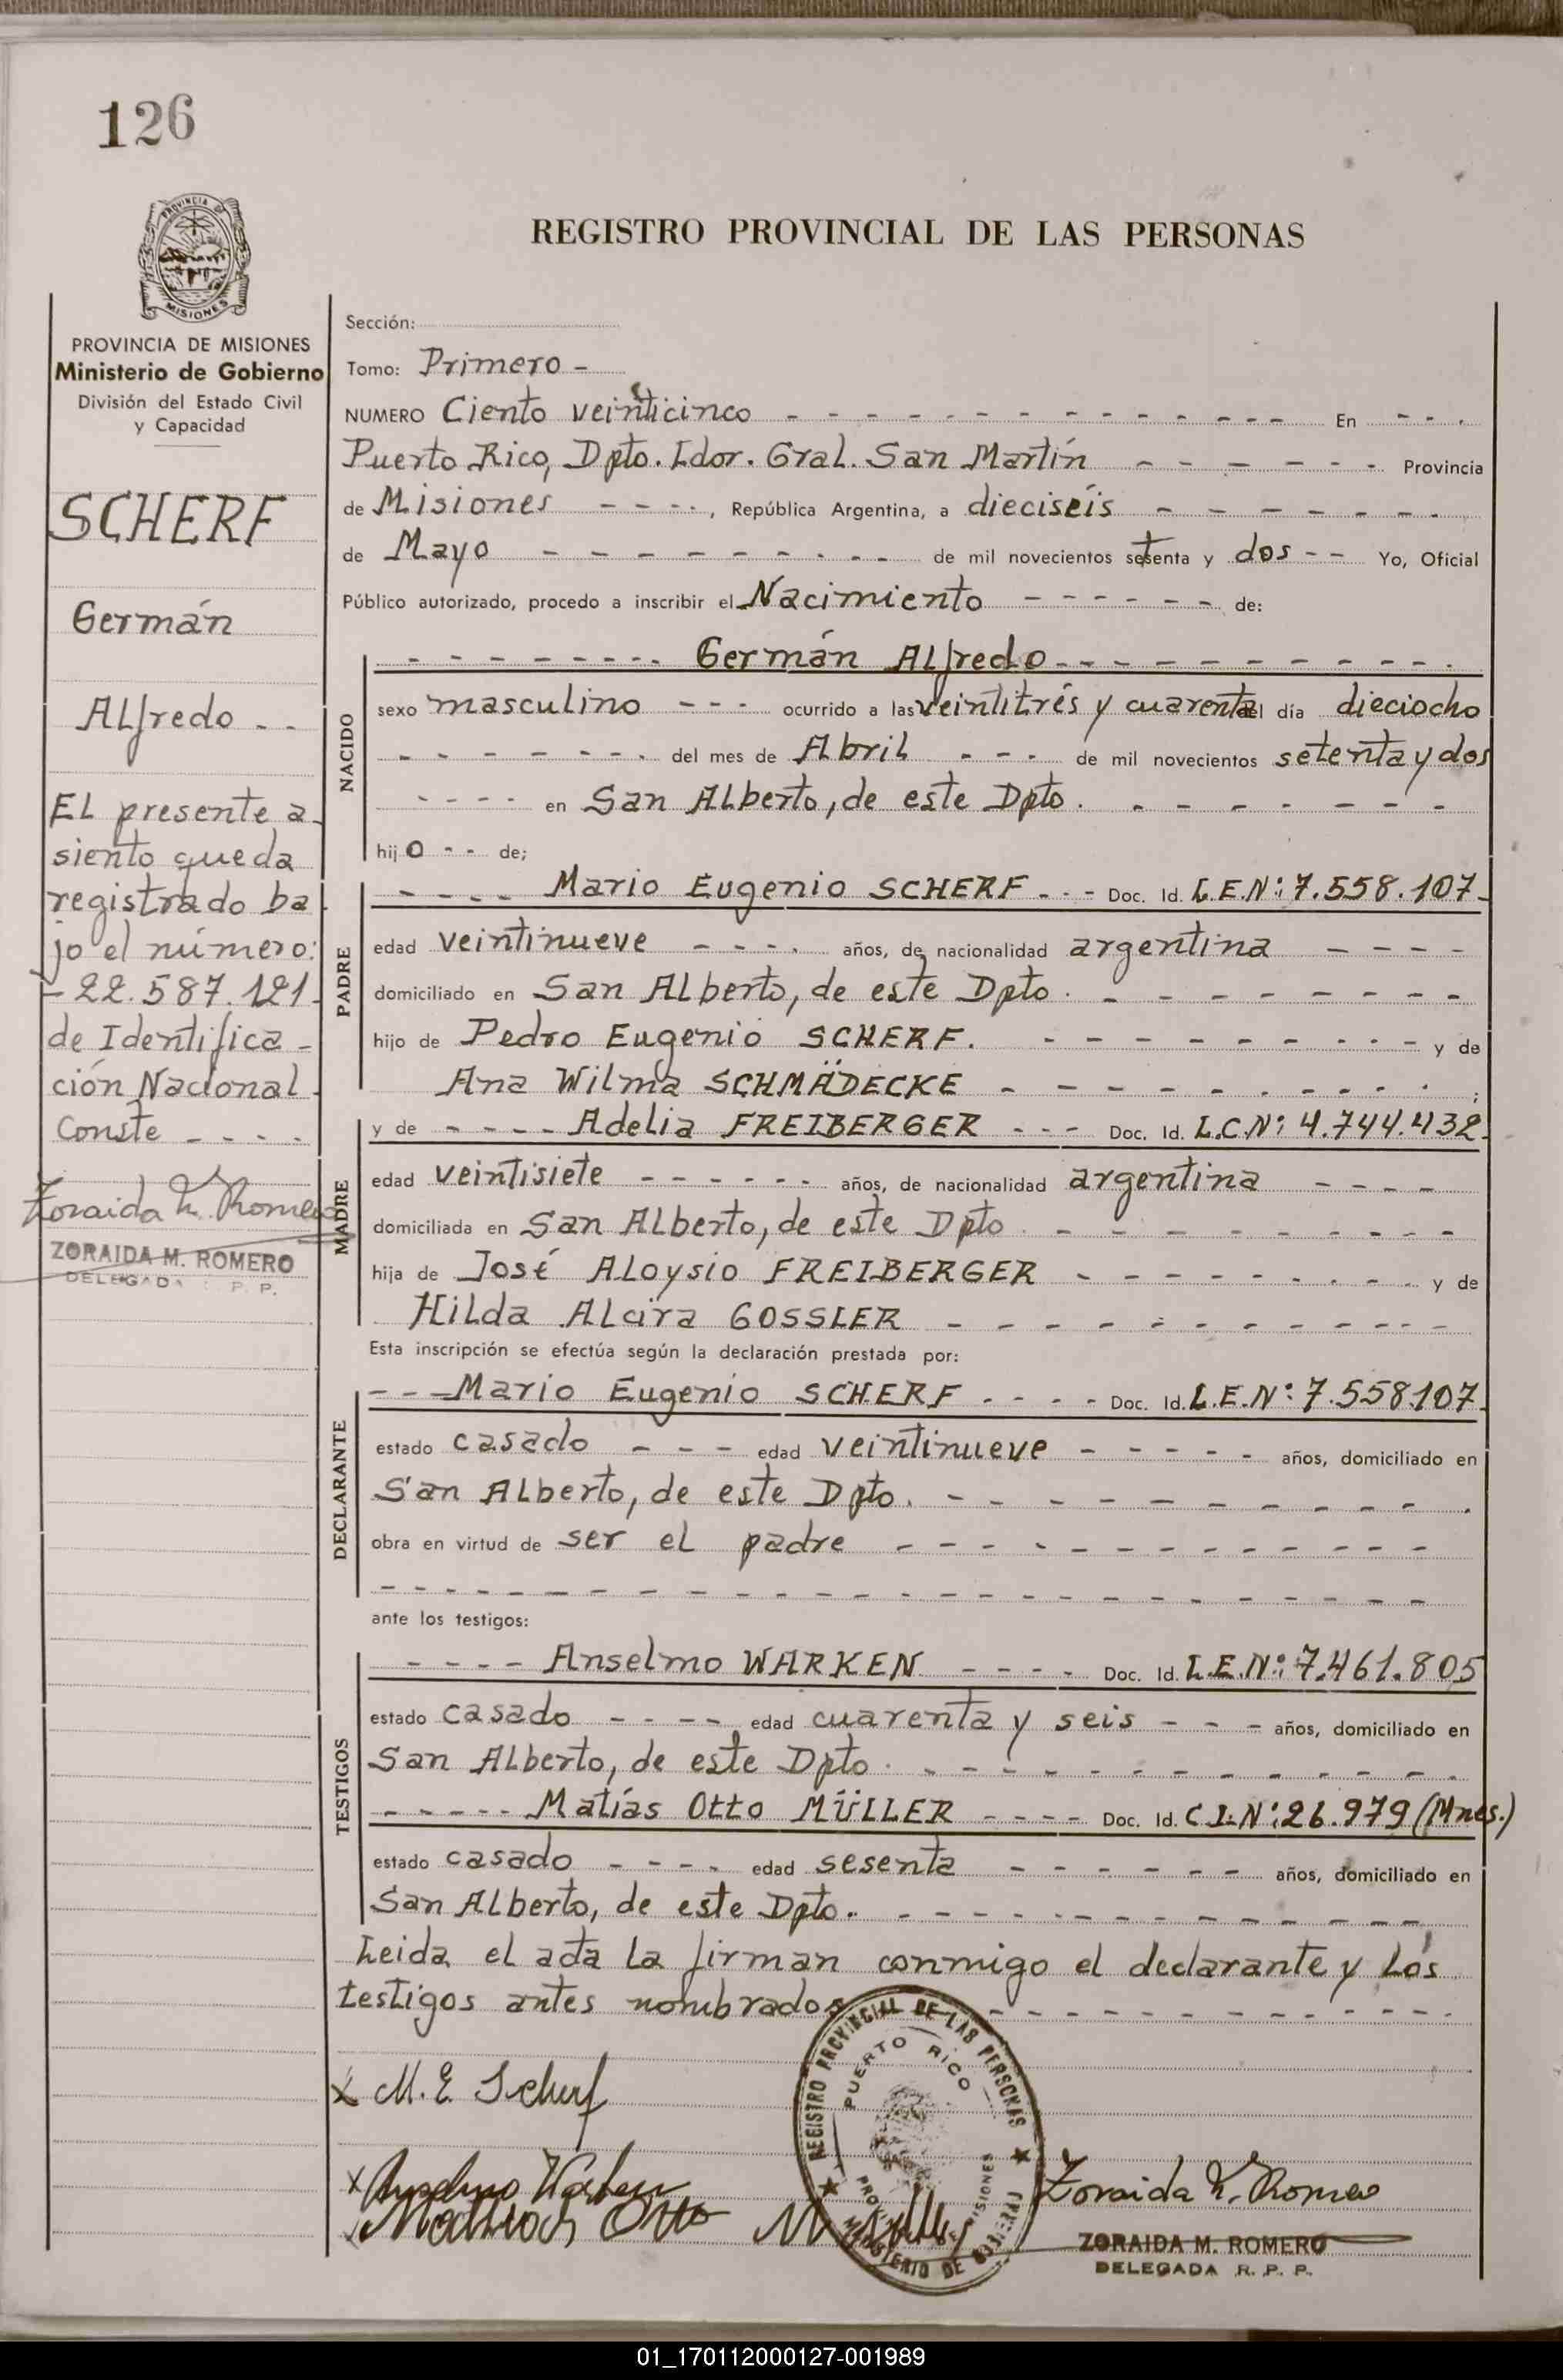 126
PROVINCIA DE
MISIONES
PROVINCIA DE MISIONES
Ministerio de Gobierno
División del Estado Civil
y Capacidad
SCHERF
Germán
Alfredo - -
El presente a-
siento queda
registrado ba
jo el número:
- 22.587.121-
de Identifica -
ción Nacional.
Conste - - - -
Zoraida M. Romero
ZORAIDA M. ROMERO
DELEGADA R. P. P.
REGISTRO PROVINCIAL DE LAS PERSONAS
Sección:
Tomo: Primero -
NUMERO Ciento veinticinco - - - - - - - - - - - - - En - - -
Puerto Rico, Dpto. Ldor. Gral. San Martín - - - - - - - Provincia
de Misiones - - - -, República Argentina, a dieciséis - - - - - - - -
de Mayo - - - - - - - - - de mil novecientos setenta y dos - - Yo, Oficial
Público autorizado, procedo a inscribir el Nacimiento - - - - - - de:
- - - - - - - - Germán Alfredo - - - - - - - - - - -
NACIDO
sexo masculino - - - ocurrido a las veintitrés y cuarenta del día dieciocho
- - - - - - - del mes de Abril - - - de mil novecientos setenta y dos
- - - - en San Alberto, de este Dpto. - - - - - - - -
hijo - - de;
PADRE
- - - - Mario Eugenio SCHERF - - - Doc. Id. L.E.Nº: 7.558.107-
edad veintinueve - - - - años, de nacionalidad argentina - - - -
domiciliado en San Alberto, de este Dpto. - - - - - - - - -
hijo de Pedro Eugenio SCHERF. - - - - - - - - - - y de
Ana Wilma SCHMÄDECKE - - - - - - - - - - ;
MADRE
y de - - - - Adelia FREIBERGER - - - Doc. Id. L.C.Nº: 4.744.432.
edad veintisiete - - - - - - años, de nacionalidad argentina - - - -
domiciliada en San Alberto, de este Dpto. - - - - - - - - - -
hija de José Aloysio FREIBERGER - - - - - - - - - y de
Hilda Alcira GOSSLER - - - - - - - - - - - -
Esta inscripción se efectúa según la declaración prestada por:
DECLARANTE
- - - Mario Eugenio SCHERF - - - - Doc. Id. L.E.Nº: 7.558.107.
estado casado - - - edad veintinueve - - - - - años, domiciliado en
San Alberto, de este Dpto. - - - - - - - - - - -
obra en virtud de ser el padre - - - - - - - - - - - - -
- - - - - - - - - - - - - - - - - - - - - - - -
ante los testigos:
TESTIGOS
- - - - Anselmo WARKEN - - - - Doc. Id. L.E.Nº: 7.461.805
estado casado - - - - edad cuarenta y seis - - - años, domiciliado en
San Alberto, de este Dpto. - - - - - - - - - - - - -
- - - - - Matías Otto MÜLLER - - - - Doc. Id. C.I.Nº: 26.979 (Mnes.)
estado casado - - - - edad sesenta - - - - - - - años, domiciliado en
San Alberto, de este Dpto. - - - - - - - - - - - - -
Leida el acta la firman conmigo el declarante y los
testigos antes nombrados - - - - - - - - - - - -
REGISTRO PROVINCIAL DE LAS PERSONAS
PUERTO RICO
MINISTERIO DE GOBIERNO
x M. E. Scherf
x Anselmo Warken
Mathias Otto Müller
Zoraida M. Romero
ZORAIDA M. ROMERO
DELEGADA R. P. P.
01_170112000127-001989